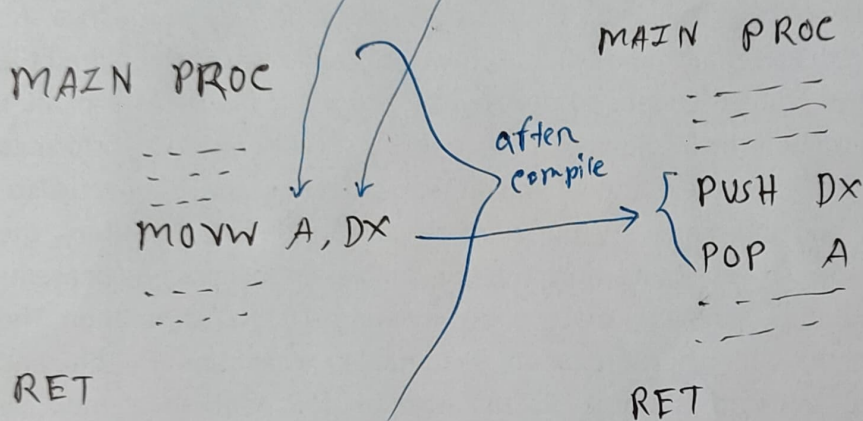 MAIN PROC
MOVW A, DX
RET
after
compile
MAIN PROC
PUSH DX
POP A
RET